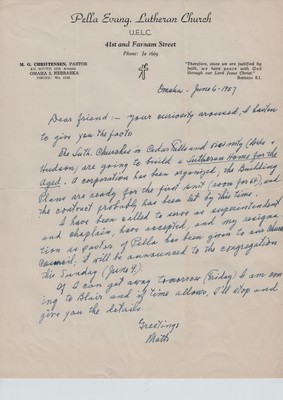 Pella Evang. Lutheran Church
U.E.L.C.
41st and Farnam Street
Phone: Ja 1669
M. G. CHRISTENSEN, PASTOR
OMAHA 3, NEBRASKA
"Therefore, since we are justified by
faith, we have peace with God
through our Lord Jesus Christ."
Romans 5:1.
Omaha - June 6 - 1957
Dear friend:- Your curiosity aroused, I hasten
to give you the facts.
The Luth. Churches in Cedar Falls and vicinity (
Hudson) are going to build a Lutheran Home for the
Aged. A corporation has been organized, the Building
Plans are ready for the first unit (room for 60), and
the contract probably has been let by this time.
I have been called to serve as superintendent
and chaplain, have accepted, and my resigna
tion as pastor of Pella has been given to our Church
Council; it will be announced to the congregation
this Sunday (June 9.)
If I can get away tomorrow (Friday) I am com
ing to Blair and if time allows, I'll stop and
give you the details.
Greetings